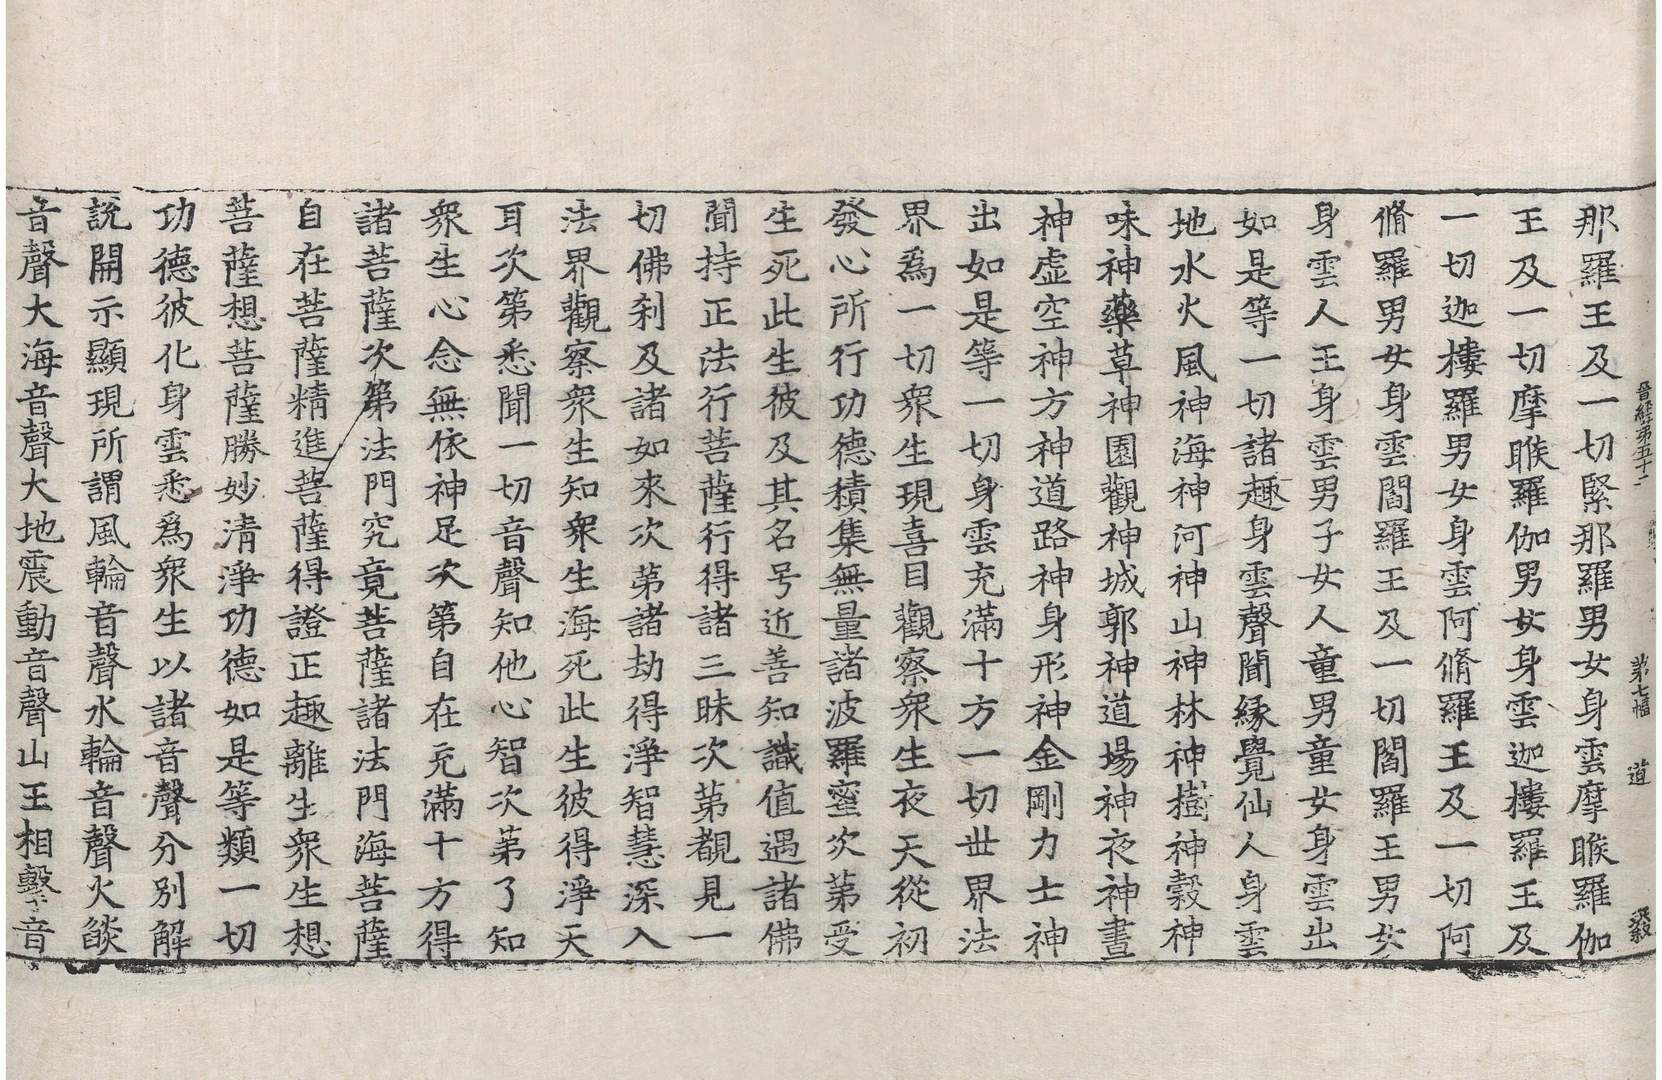 晉經第五十二 第七幅 道
那羅王及一切緊那羅男女身雲摩睺羅伽
王及一切摩睺羅伽男女身雲迦樓羅王及
一切迦樓羅男女身雲阿脩羅王及一切阿
脩羅男女身雲閻羅王及一切閻羅王男女
身雲人王身雲男子女人童男童女身雲出
如是等一切諸趣身雲聲聞緣覺仙人身雲
地水火風神海神河神山神林神樹神穀神
味神藥草神園觀神城郭神道場神夜神晝
神虛空神方神道路神身形神金剛力士神
出如是等一切身雲充滿十方一切世界法
界為一切衆生現喜目觀察衆生夜天從初
發心所行功德積集無量諸波羅蜜次第受
生死此生彼及其名号近善知識值遇諸佛
聞持正法行菩薩行得諸三昧次第覩見一
切佛刹及諸如來次第諸劫得淨智慧深入
法界觀察衆生知衆生海死此生彼得淨天
耳次第悉聞一切音聲知他心智次第了知
衆生心念無依神足次第自在充滿十方得
諸菩薩次第法門究竟菩薩諸法門海菩薩
自在菩薩精進菩薩得證正趣離生衆生想
菩薩想菩薩勝妙清淨功德如是等類一切
功德彼化身雲悉為衆生以諸音聲分別解
說開示顯現所謂風輪音聲水輪音聲火燄
音聲大海音聲大地震動音聲山王相擊音